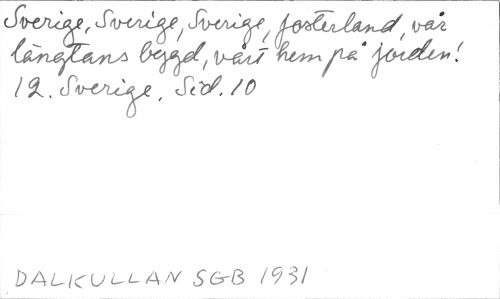 Sverige, Sverige, Sverige, fosterland, vår
längtans bygd, vårt hem på jorden!
12. Sverige. Sid. 10
DALKULLAN SGB 1931